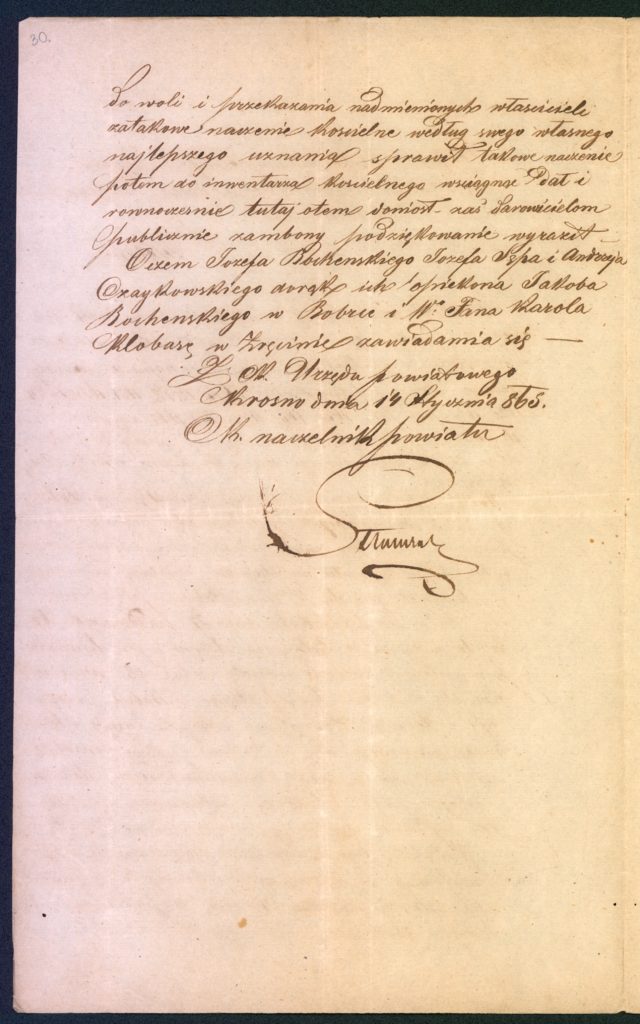 30.
do woli i przekazania nadmienionych właścicieli
zatakowe naczenie kościelne według swego własnego
najlepszego uznania sprawił takowe naczenie
potem do inwentarza kościelnego wsciągnął dat i
rownocześnie tutaj otem doniost zaś Darowicielom
publicznie zambony podziękowanie wyraził
Oczem Jozefa Bochenskiego Jozefa i Andrzeja
Czaykowskiego dorąk ich opiekona Jakoba
Bochenskiego w Bobrce i Wo Jana Karola
Klobasę w Zręcinie zawiadamia się —
Urzędu powiatowego
Krosno dnia 14 Stycznia 865.
naczelnik powiatu